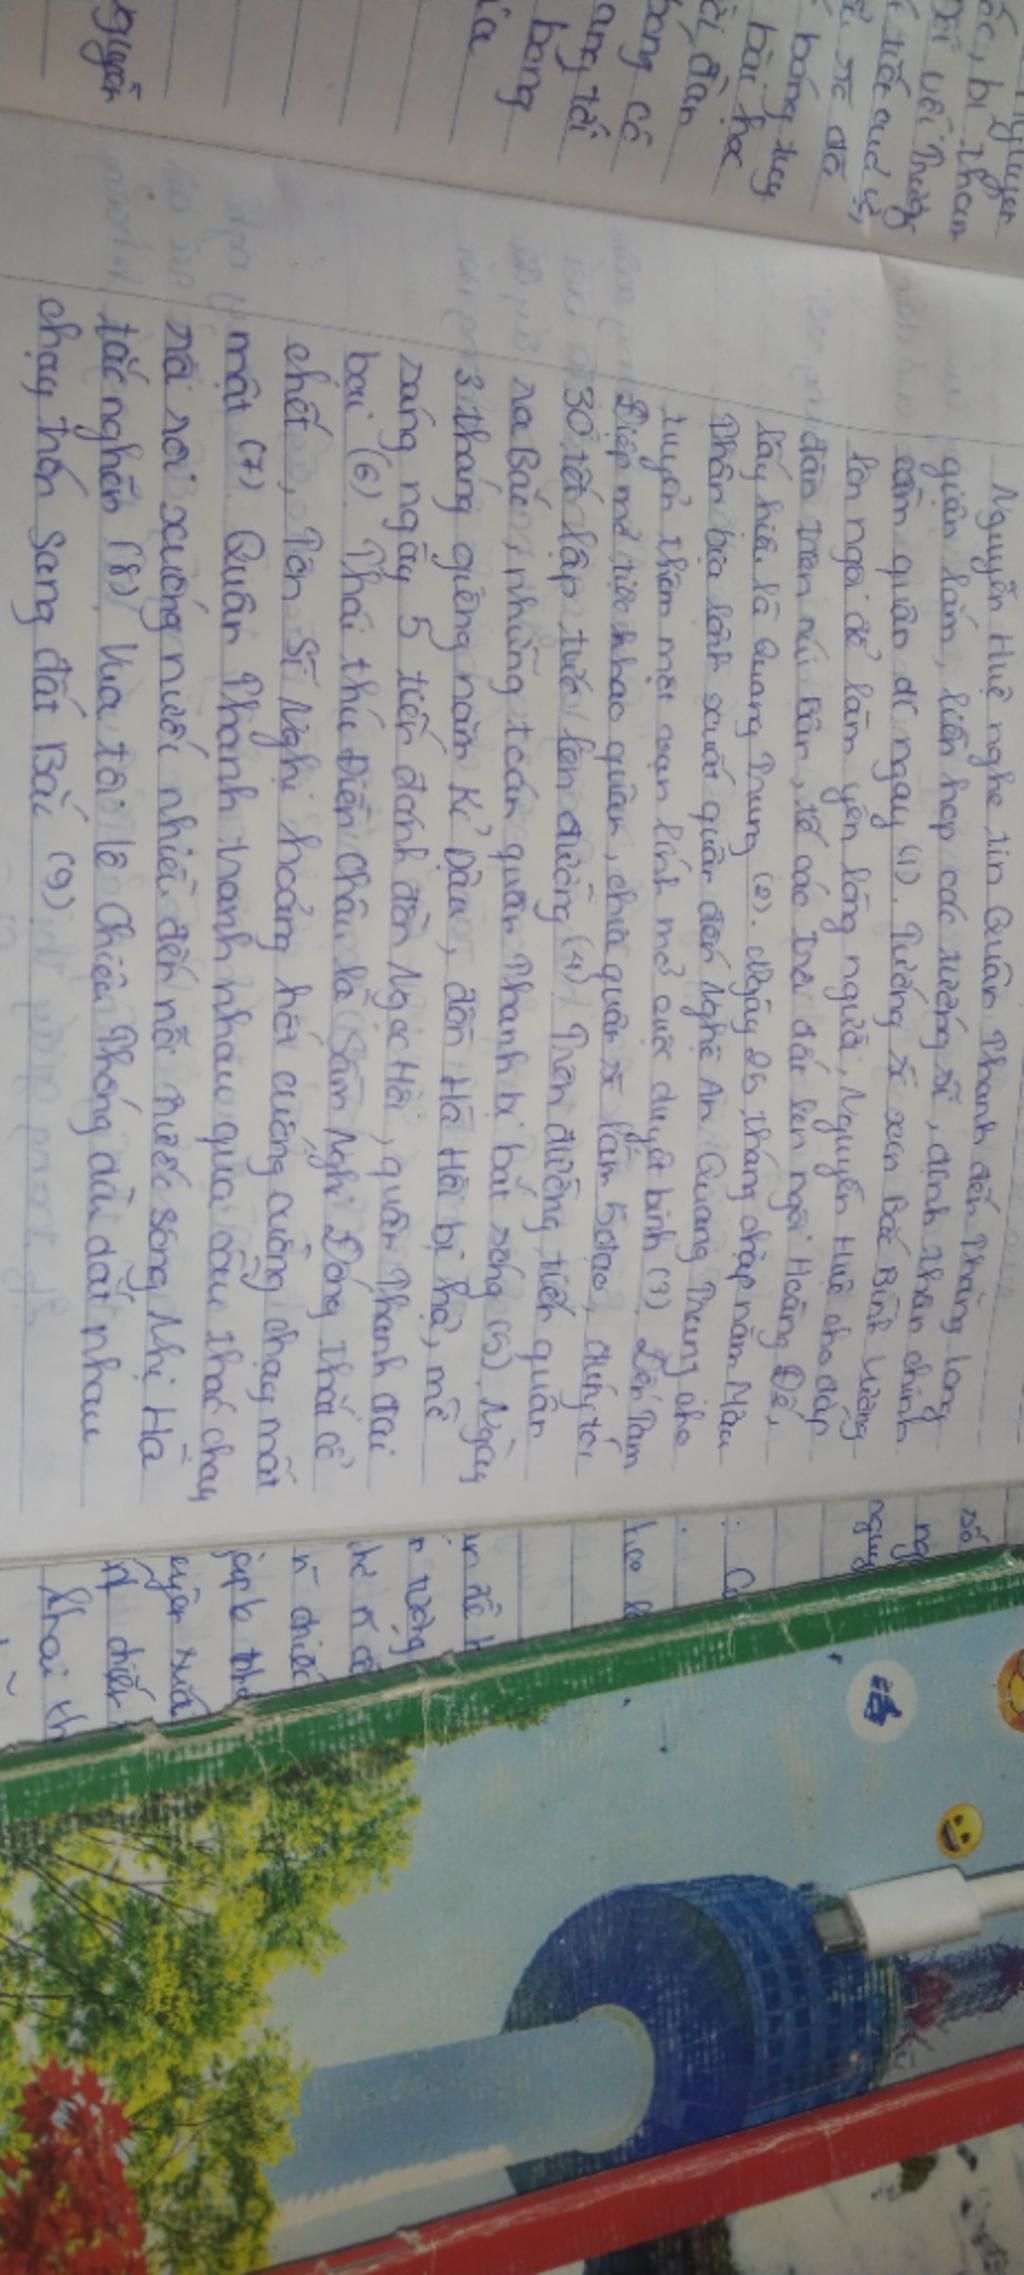 Nguyễn Huệ nghe tin Quân Thanh đến Thăng Long
giận lắm, liền họp các tướng sĩ, định thân chinh
cầm quân đi ngay (1). Tướng sĩ xin Bắc Bình Vương
lên ngôi để làm yên lòng người, Nguyễn Huệ cho đắp
đàn trên núi Bân, tế cáo trời đất lên ngôi Hoàng Đế,
lấy hiệu là Quang Trung (2). Ngày 25 tháng chạp năm Mậu
Thân bèn lãnh xuất quân đến Nghệ An Quang Trung cho
tuyển thêm một vạn lính mở cuộc duyệt binh (3). Đến Tam
Điệp mở tiệc khao quân, chia quân sĩ làm 5 đạo, đúng tối
30 tết lập tức lên đường (4). Trên đường tiến quân
ra Bắc, những toán quân Thanh bị bắt sống (5). Ngày
3 tháng giêng năm Kỉ Dậu, đồn Hà Hồi bị hạ, mờ
sáng ngày 5 tiến đánh đồn Ngọc Hồi, quân Thanh đại
bại (6). Thái thú Điền Châu là Sầm Nghi Đống thắt cổ
chết, Tôn Sĩ Nghị hoảng hốt cuống cuồng chạy mất
mật (7). Quân Thanh tranh nhau qua cầu tháo chạy
rồi rơi xuống nước nhiều đến nỗi nước sông Nhị Hà
tắc nghẽn (8). Vua tôi lê Chiêu Thống dìu dắt nhau
chạy trốn sang đất Bắc (9)
nguyễn
bong
bài học
bong có
đàn